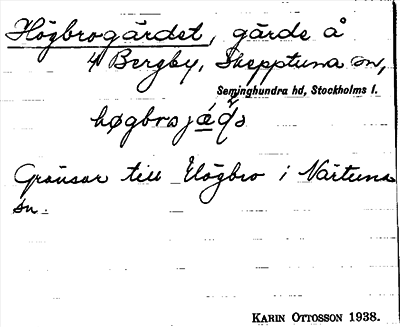 Högbrogärdet, gärde å
4 Bergby, Skepptuna sn,
Seminghundra hd, Stockholms l.
høgbrojǽ̀ḍs
Gränsar till Högbro i Närtuna
sn.
KARIN OTTOSSON 1938.